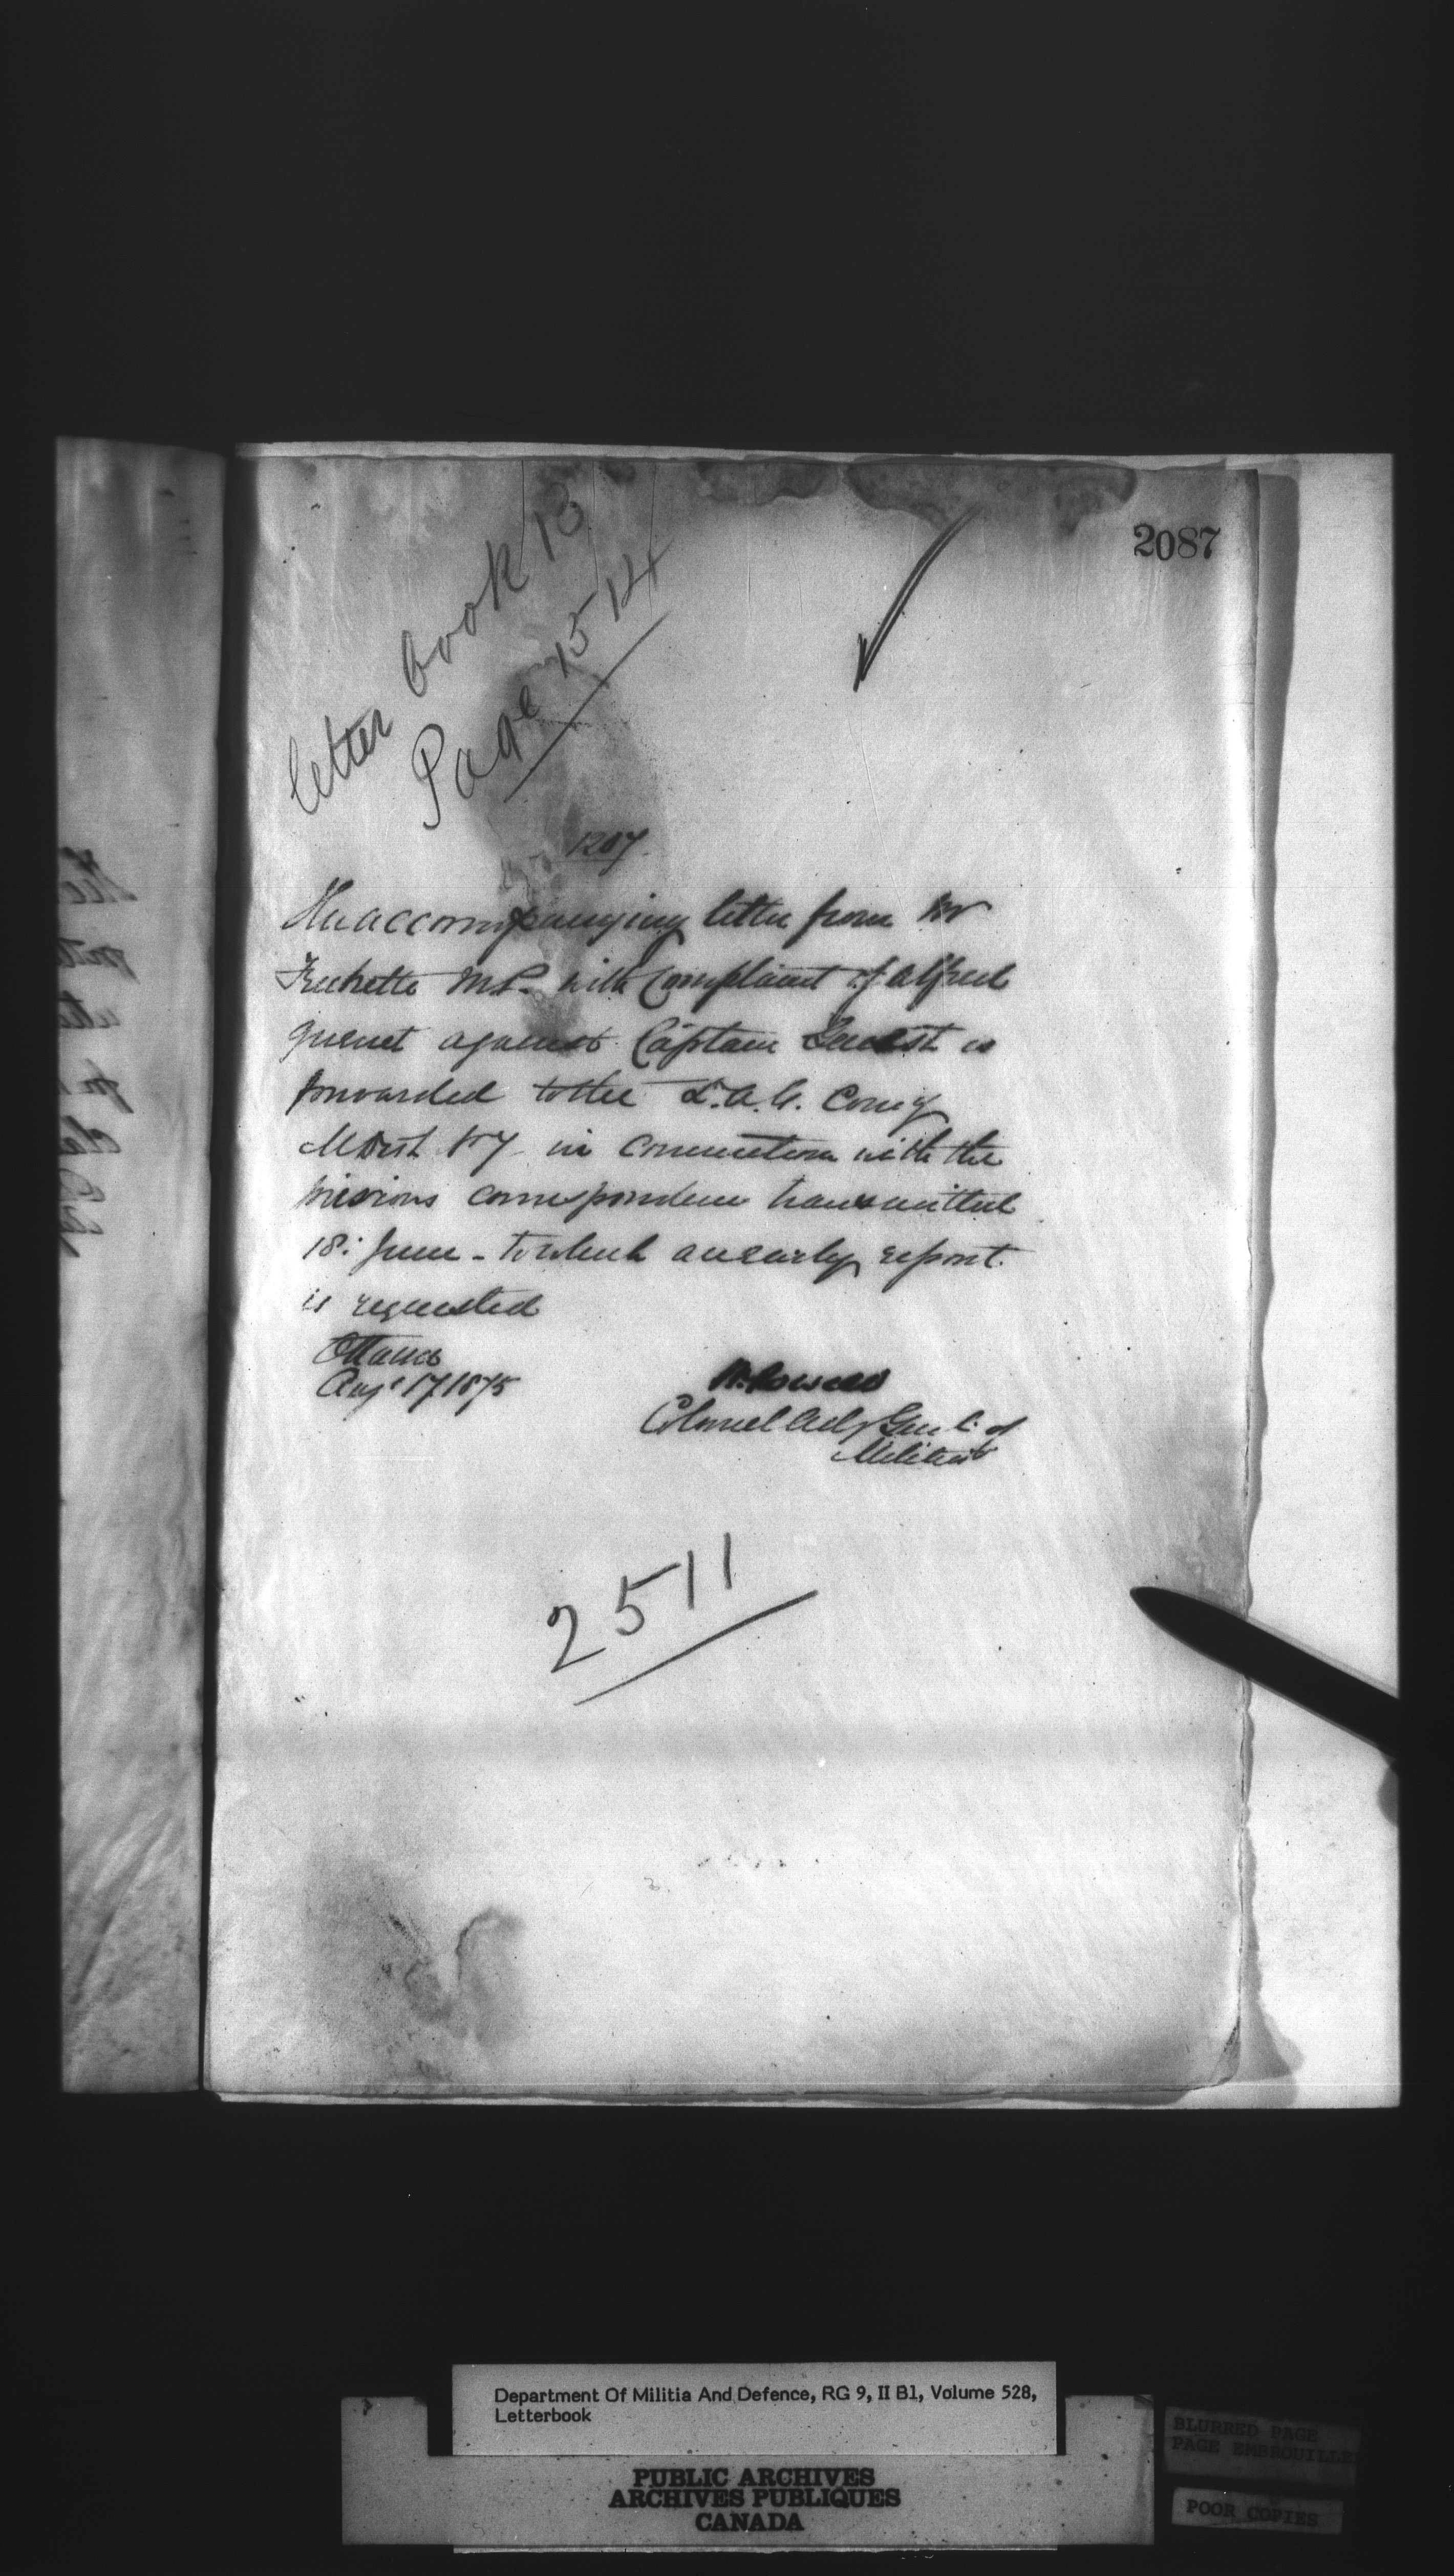 2087
letter book 13
Page 1514
1207
The accompanying letter from Mr
Frechette M.P. with Complaint of Alfred
Guenet against Captain is
forwarded to the D.A.G. Comg
Dist No 7 in connection with the
previous correspondence transmitted
18: June - to which an early report
is requested
Ottawa
Augt 17 1875
W. Powell
Colonel Adjt Genl: of
Militia
2511
Department Of Militia And Defence, RG 9, II B1, Volume 528,
Letterbook
PUBLIC ARCHIVES
ARCHIVES PUBLIQUES
CANADA
BLURRED PAGE
PAGE EMBROUILLE
POOR COPIES